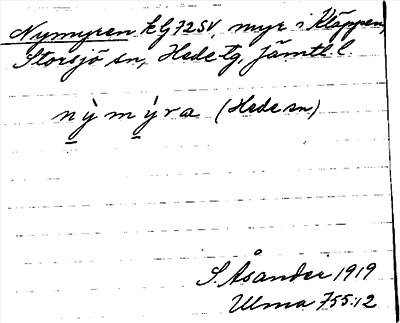 Nymyren k G72SV, myr i Kläppen,
Storsjö sn, Hede tg, Jämtl. l.
nỳmýra (Hede sn)
S. Åsander 1919
Ulma 755:12